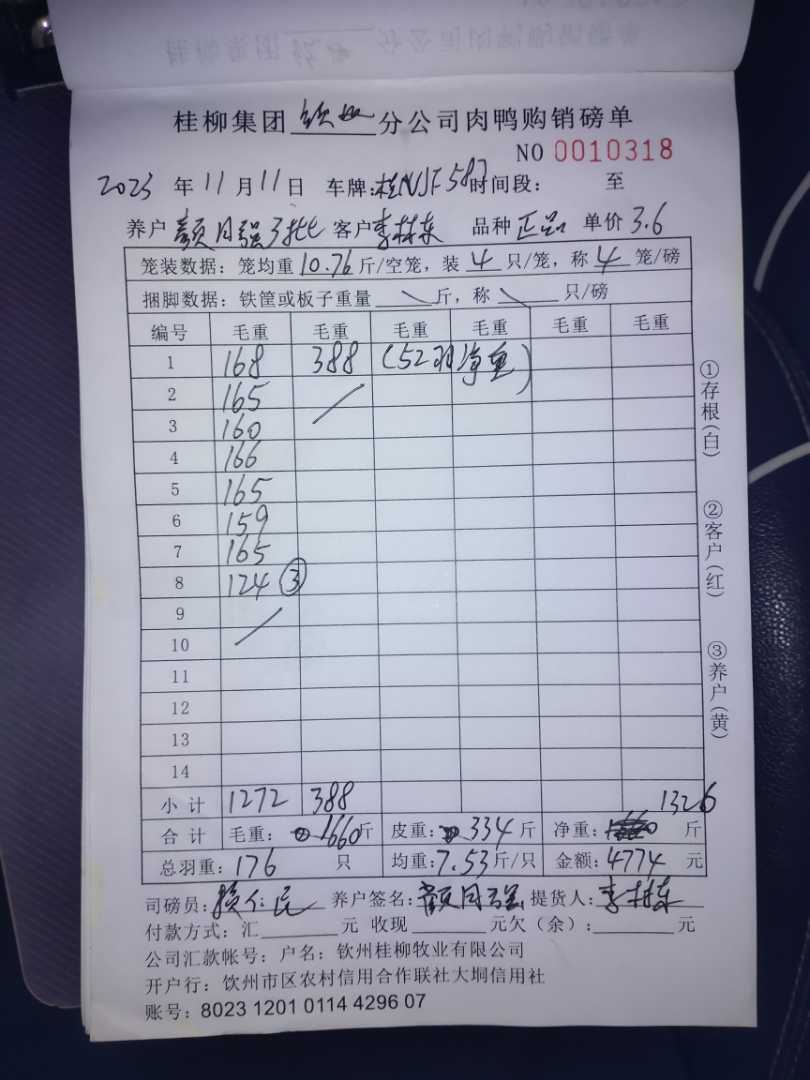 桂柳集团 钦州 分公司肉鸭购销磅单
NO 0010318
2023 年 11 月 11 日 车牌:桂NJF587 时间段: 至
养户 颜月强3批 客户 李林东 品种 正品 单价 3.6
笼装数据: 笼均重 10.76 斤/空笼, 装 4 只/笼, 称 4 笼/磅
捆脚数据: 铁筐或板子重量 斤, 称 只/磅
编号 毛重 毛重 毛重 毛重 毛重 毛重
1 168 388 (52羽净重)
2 165
3 160
4 166
5 165
6 159
7 165
8 124 ③
9
10
11
12
13
14
小计 1272 388 1326
合计 毛重: 1660斤 皮重: 334 斤 净重: 斤
总羽重: 176 只 均重: 7.53斤/只 金额: 4774 元
司磅员: 仁民 养户签名: 颜月强 提货人: 李林东
付款方式: 汇 元 收现 元欠(余): 元
公司汇款帐号: 户名: 钦州桂柳牧业有限公司
开户行: 饮州市区农村信用合作联社大垌信用社
账号: 8023 1201 0114 4296 07
①存根(白)
②客户(红)
③养户(黄)